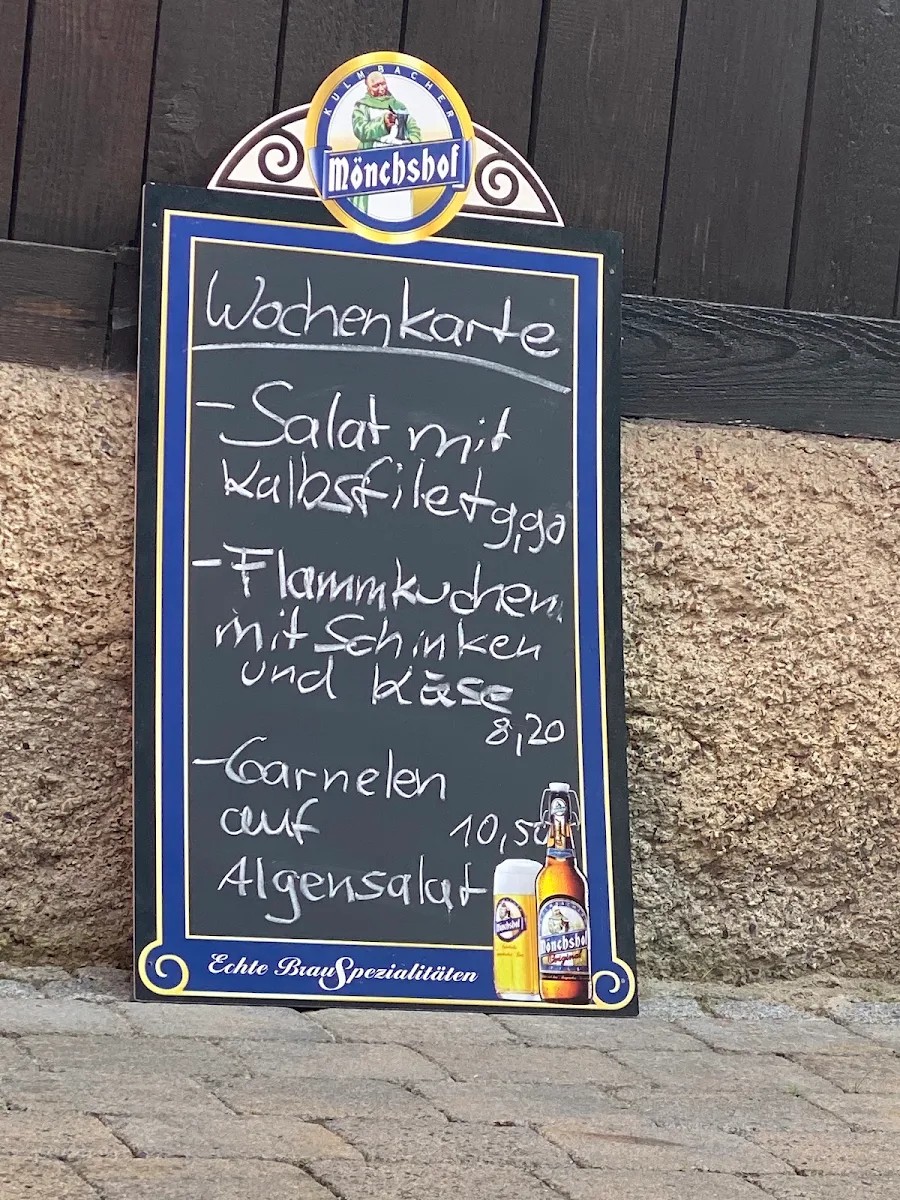 KULMBACHER
Mönchshof
Wochenkarte
- Salat mit
Kalbsfilet 9,90
- Flammkuchen
mit Schinken
und Käse
8,20
- Garnelen
auf 10,50
Algensalat
Mönchshof
Mönchshof
Original
Echte BrauSpezialitäten